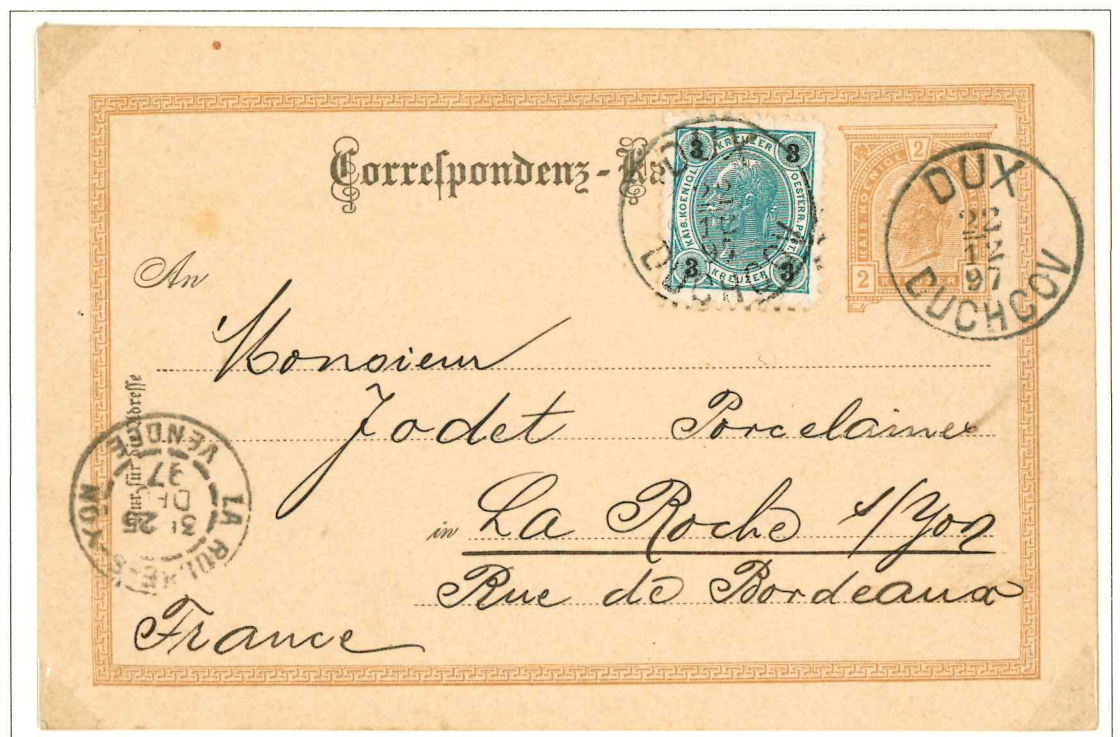 Correspondenz-Ka
3 KREUZER 3
KAIS. KOENIGL. OESTERR. POST.
3 KREUZER 3
DUX
22
12
97
DUCHCOV
2 2
KAIS. KOENIGL.
2
DUX
22
12
97
DUCHCOV
An
Monsieur
Jodet Porcelaines
in La Roche s/Yon
Rue de Bordeaux
France
ur für d Adresse
LA ROCHE-S-YON
25
DEC
97
VENDEE